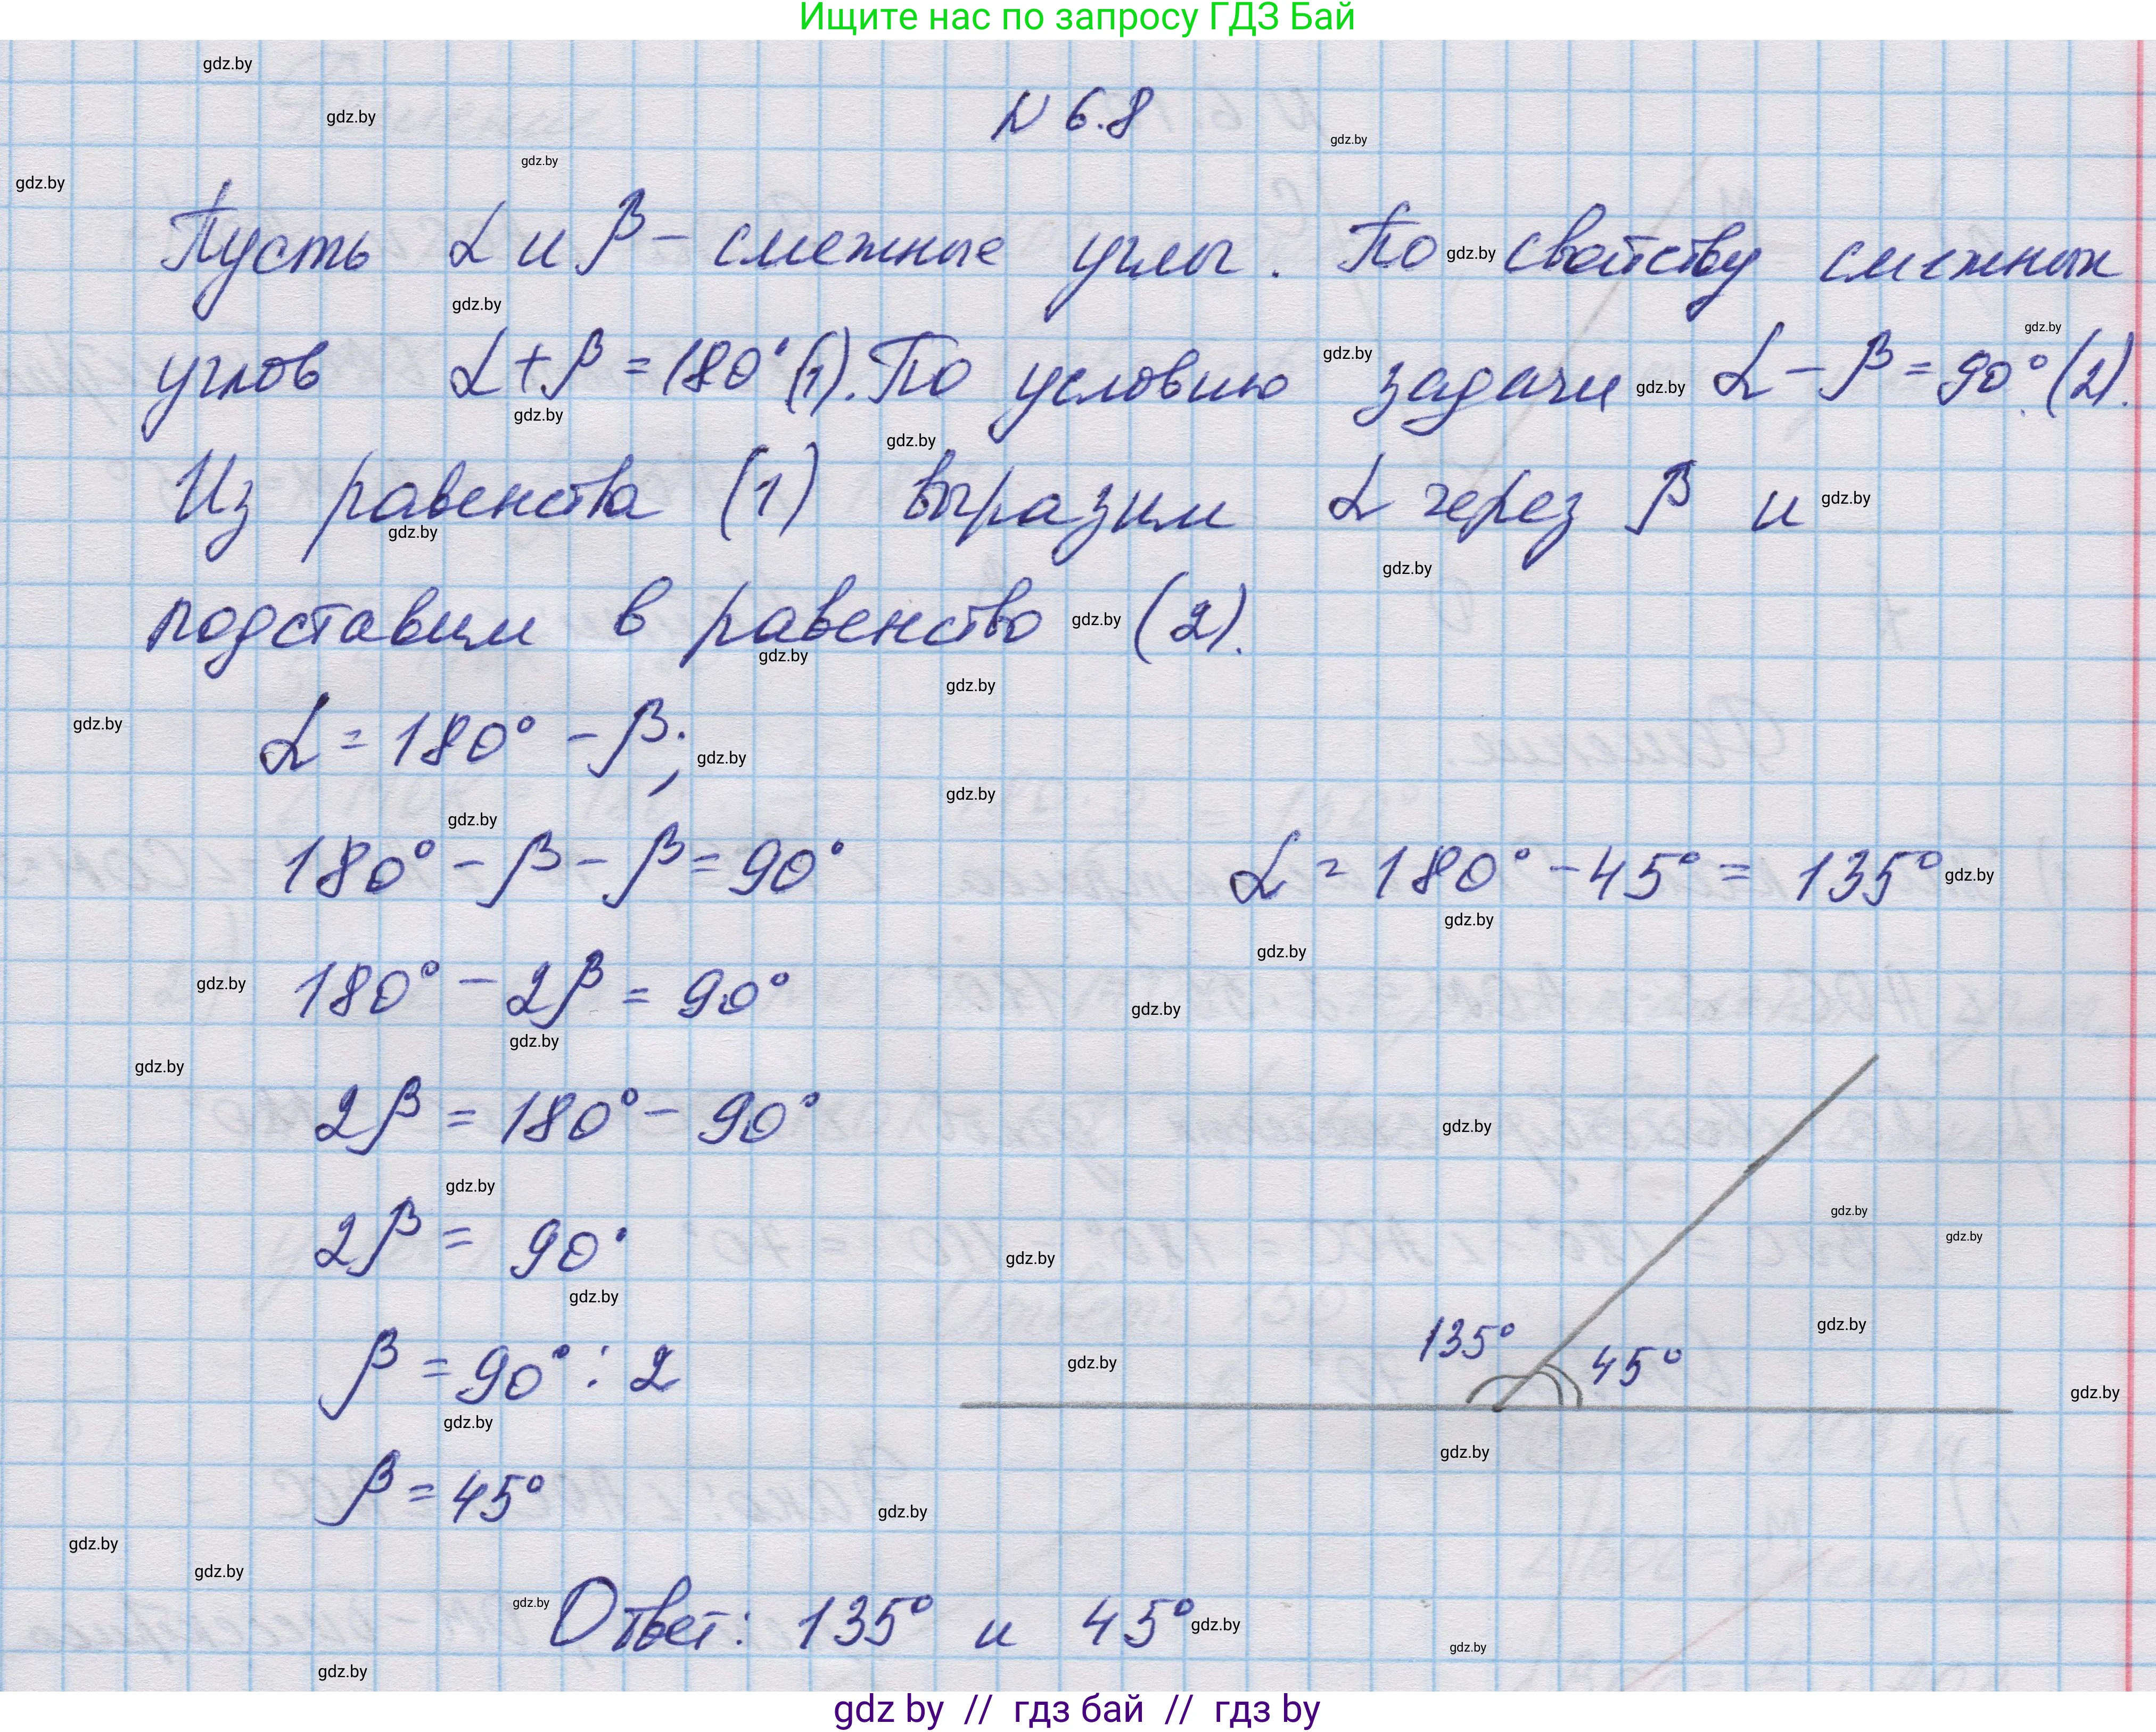 Ищите нас по запросу ГДЗ Бай
N 6.8
Пусть α и β – смежные углы. По свойству смежных
углов α + β = 180° (1). По условию задачи α – β = 90° (2).
Из равенства (1) выразим α через β и
подставим в равенство (2).
α = 180° – β;
180° – β – β = 90°
α = 180° – 45° = 135°
180° – 2β = 90°
2β = 180° – 90°
2β = 90°
β = 90° : 2
135°
45°
β = 45°
Ответ: 135° и 45°
gdz by // гдз бай // гдз by